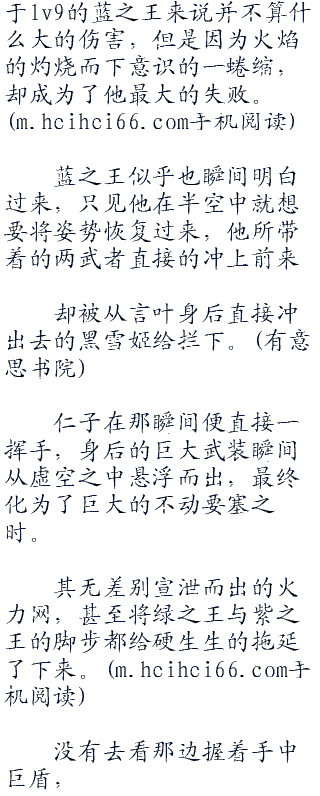 于lv9的蓝之王来说并不算什
么大的伤害，但是因为火焰
的灼烧而下意识的一蜷缩，
却成为了他最大的失败。
(m.hcihci66.com手机阅读)
蓝之王似乎也瞬间明白
过来，只见他在半空中就想
要将姿势恢复过来，他所带
着的两武者直接的冲上前来
却被从言叶身后直接冲
出去的黑雪姬给拦下。(有意
思书院)
仁子在那瞬间便直接一
挥手，身后的巨大武装瞬间
从虚空之中悬浮而出，最终
化为了巨大的不动要塞之
时。
其无差别宣泄而出的火
力网，甚至将绿之王与紫之
王的脚步都给硬生生的拖延
了下来。(m.hcihci66.com手
机阅读)
没有去看那边握着手中
巨盾，